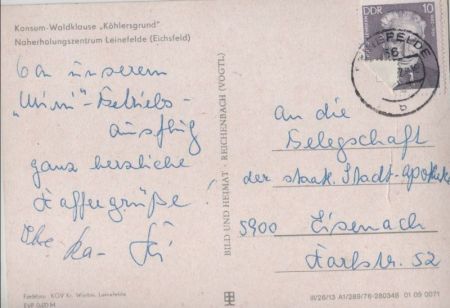 Konsum-Waldklause „Köhlersgrund"
Naherholungszentrum Leinefelde (Eichsfeld)
Von unserem
„Mini"-Betriebs-
ausflug
ganz herzliche
Kaffeegrüße!
Ihre
BILD UND HEIMAT · REICHENBACH (VOGTL)
DDR 10
LEINEFELDE
b
An die
Belegschaft
der staatl. Stadt-Apotheke
5900 Eisenach
Karlstr. 52
Leinefelde
EVP 0,20 M
III/26/13 A1/289/76-280348 01 09 0071